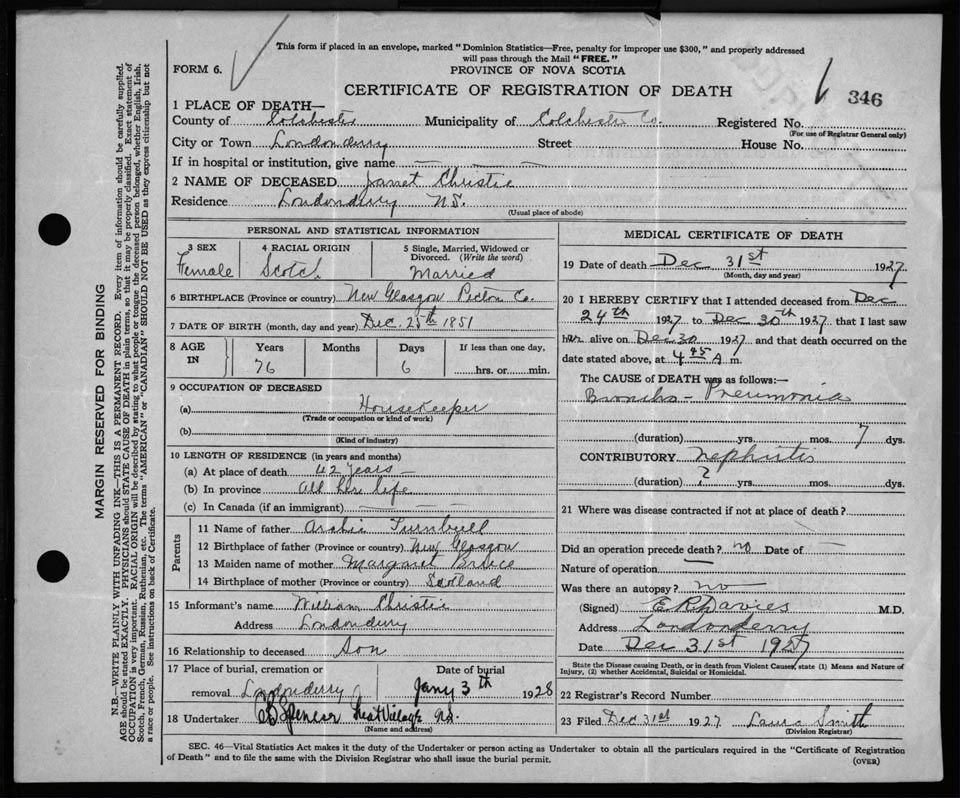 This form if placed in an envelope, marked "Dominion Statistics—Free, penalty for improper use $300," and properly addressed
will pass through the Mail "FREE."
FORM 6.
PROVINCE OF NOVA SCOTIA
CERTIFICATE OF REGISTRATION OF DEATH
346
1 PLACE OF DEATH—
County of Colchester Municipality of Colchester Co. Registered No.
(For use of Registrar General only)
City or Town Londonderry Street House No.
If in hospital or institution, give name
2 NAME OF DECEASED Janet Christie
Residence Londonderry N.S.
(Usual place of abode)
PERSONAL AND STATISTICAL INFORMATION
3 SEX 4 RACIAL ORIGIN 5 Single, Married, Widowed or
Divorced. (Write the word)
Female Scotch Married
6 BIRTHPLACE (Province or country) New Glasgow Pictou Co.
7 DATE OF BIRTH (month, day and year) Dec. 25th 1851
8 AGE IN Years Months Days If less than one day,
76 6 hrs. or min.
9 OCCUPATION OF DECEASED
(a) Housekeeper
(Trade or occupation or kind of work)
(b)
(Kind of industry)
10 LENGTH OF RESIDENCE (in years and months)
(a) At place of death 42 years
(b) In province all her life
(c) In Canada (if an immigrant)
Parents
11 Name of father Archie Turnbull
12 Birthplace of father (Province or country) New Glasgow
13 Maiden name of mother Margaret
14 Birthplace of mother (Province or country) Scotland
15 Informant's name William Christie
Address Londonderry
16 Relationship to deceased Son
17 Place of burial, cremation or Date of burial
removal Londonderry Jany 3th 1928
18 Undertaker Spencer Great Village N.S.
(Name and address)
MEDICAL CERTIFICATE OF DEATH
19 Date of death Dec 31st 1927
(Month, day and year)
20 I HEREBY CERTIFY that I attended deceased from Dec
24th 1927 to Dec 30th 1927 that I last saw
her alive on Dec 30 1927 and that death occurred on the
date stated above, at 4 45 A m.
The CAUSE OF DEATH was as follows:—
Broncho-Pneumonia
(duration) yrs. mos. 7 dys.
CONTRIBUTORY Nephritis
(duration) ? yrs. mos. dys.
21 Where was disease contracted if not at place of death?
Did an operation precede death? no Date of
Nature of operation
Was there an autopsy? no
(Signed) E R Davies M.D.
Address Londonderry
Date Dec 31st 1927
State the Disease causing Death, or in death from Violent Causes, state (1) Means and Nature of
Injury, (2) whether Accidental, Suicidal or Homicidal.
22 Registrar's Record Number
23 Filed Dec 31st 1927 Laura Smith
(Division Registrar)
SEC. 46—Vital Statistics Act makes it the duty of the Undertaker or person acting as Undertaker to obtain all the particulars required in the "Certificate of Registration
of Death" and to file the same with the Division Registrar who shall issue the burial permit.
(OVER)
MARGIN RESERVED FOR BINDING
N.B.—WRITE PLAINLY WITH UNFADING INK—THIS IS A PERMANENT RECORD. Every item of information should be carefully supplied.
AGE should be stated EXACTLY. PHYSICIANS should STATE CAUSE OF DEATH in plain terms, so that it may be properly classified. Exact statement of
OCCUPATION is very important. RACIAL ORIGIN will be described by stating to what people or tongue the deceased person belonged, whether English, Irish,
Scotch, French, German, Russian, Ruthenian, etc. The terms "AMERICAN" or "CANADIAN" SHOULD NOT BE USED as they express citizenship but not
a race or people. See instructions on back of Certificate.